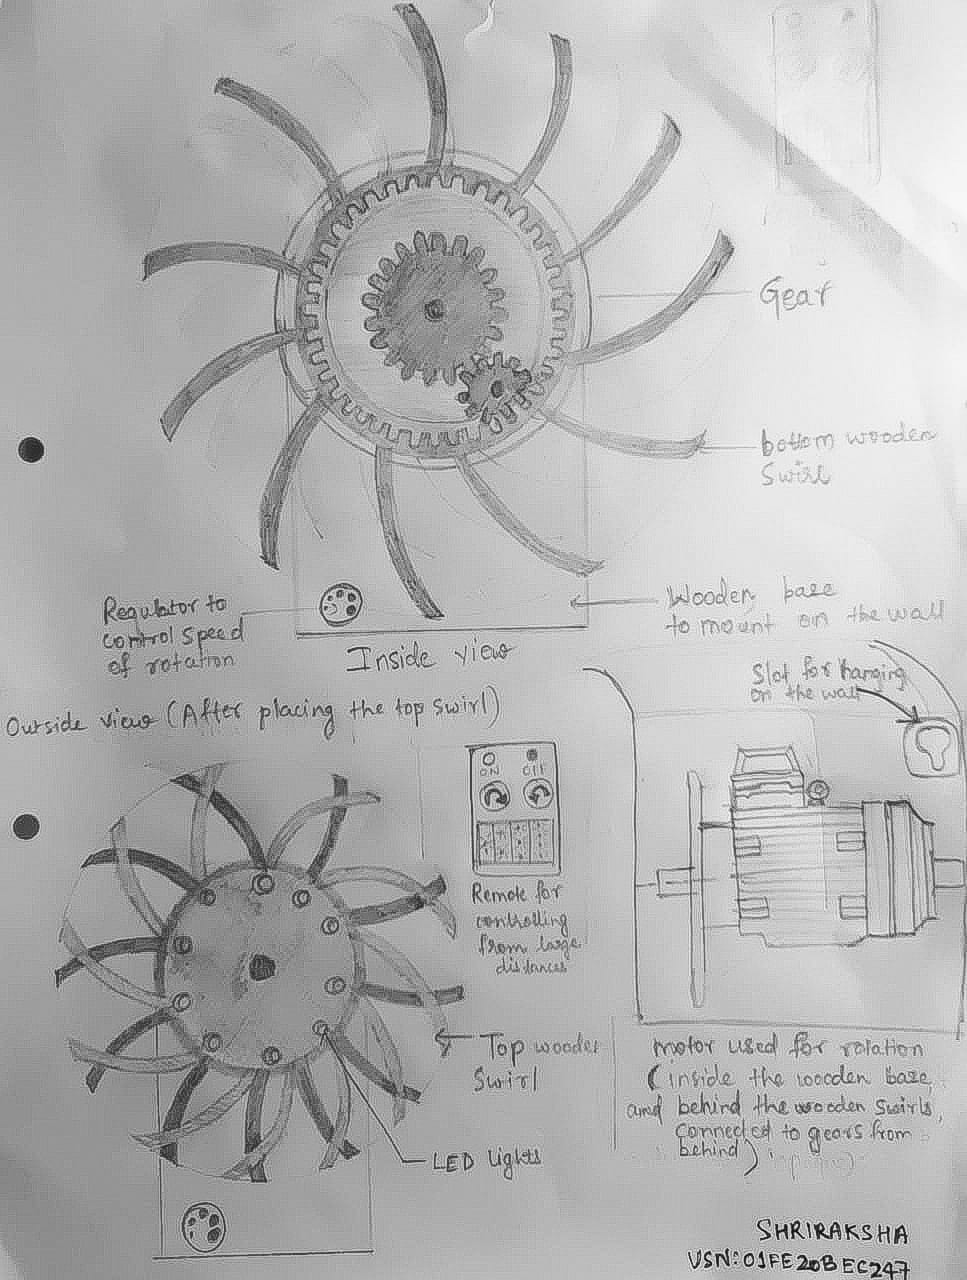 Gear
bottom wooden
swirl
Regulator to
control speed
of rotation
Wooden base
to mount on the wall
Inside view
Slot for hanging
on the wall
Outside view (After placing the top swirl)
ON OFF
Remote for
controlling
from large
distances
Top wooden
swirl
LED lights
motor used for rotation
(inside the wooden base,
and behind the wooden swirls,
connected to gears from
behind)
SHRIRAKSHA
USN:01FE20BEC247